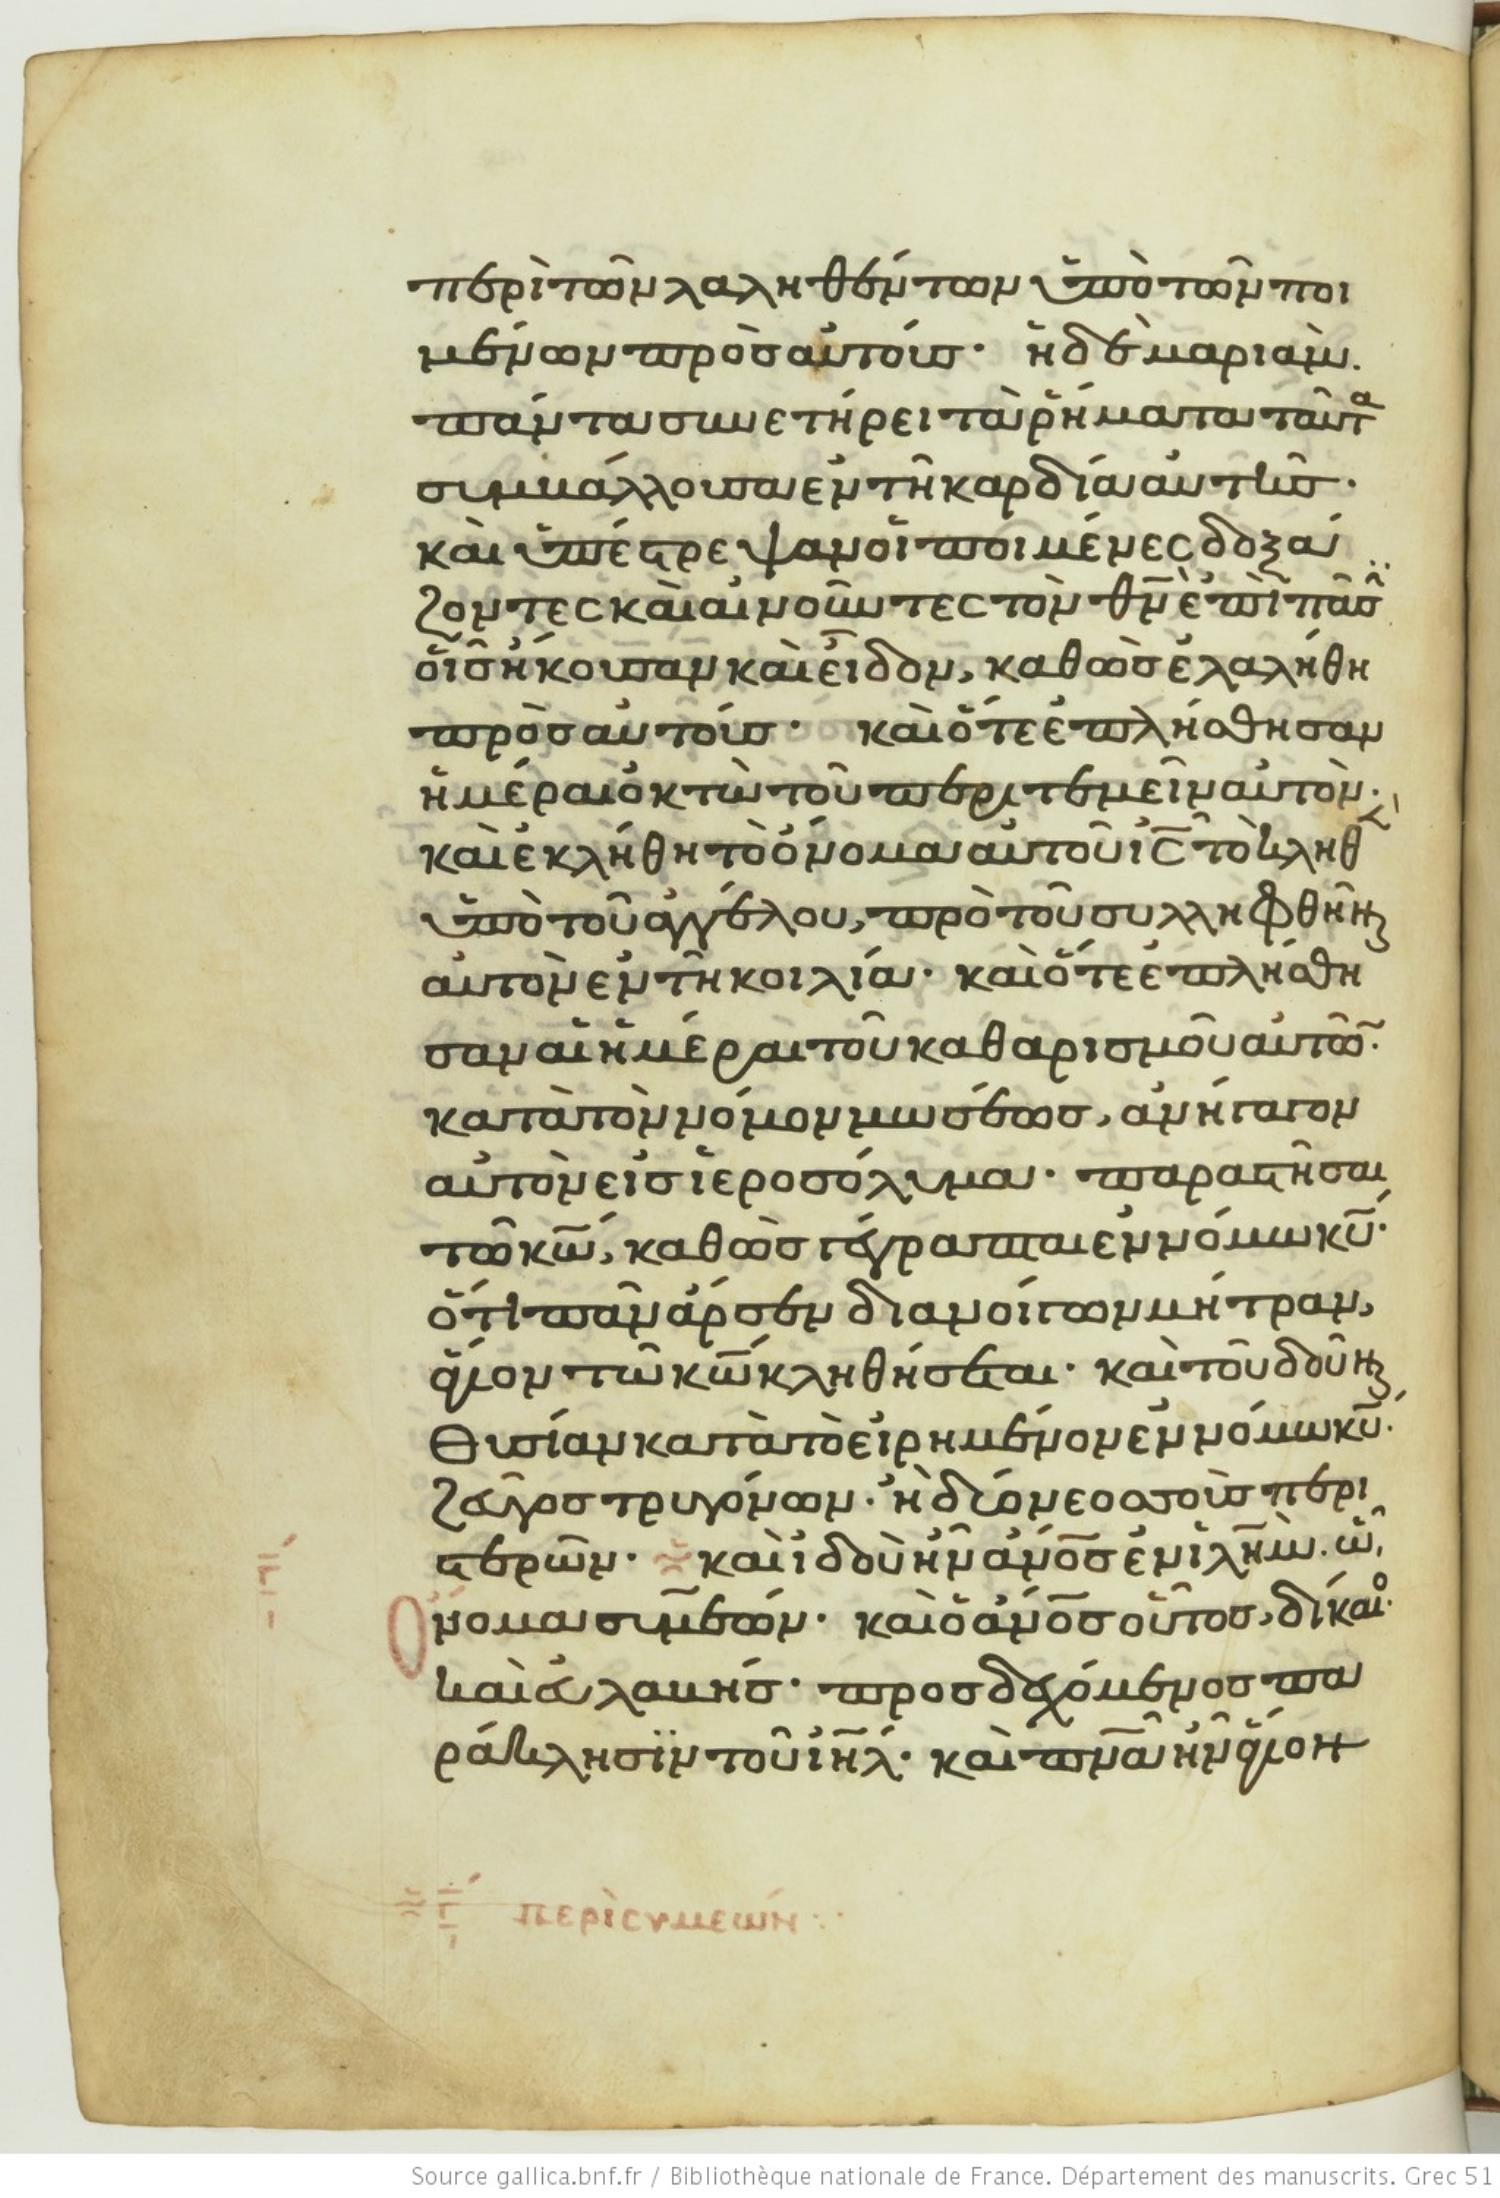 περὶ τῶν λαληθέντων ὑπὸ τῶν ποι
μένων πρὸς αὐτούς· ἡ δὲ μαριὰμ.
πάντα συνετήρει τὰ ῥήματα ταῦτα
συμβάλλουσα ἐν τῆ καρδία αὐτῆς·
καὶ ὑπέστρεψαν οἱ ποιμένες δοξά
ζοντες καὶ αἰνοῦντες τὸν θν̄ ἐπὶ πᾶσ
οἷς ἤκουσαν καὶ εἶδον, καθὼς ἐλαλήθη
πρὸς αὐτούς· καὶ ὅτε ἐπλήσθησαν
ἡμέραι ὀκτὼ τοῦ περιτεμεῖν αὐτὸν·
καὶ ἐκλήθη τὸ ὄνομα αὐτοῦ ις̄ τὸ κληθ
ὑπὸ τοῦ ἀγγέλου, πρὸ τοῦ συλληφθῆναι
αὐτὸν ἐν τῆ κοιλία· καὶ ὅτε ἐπλήσθη
σαν αἱ ἡμέραι τοῦ καθαρισμοῦ αὐτῶ·
κατὰ τὸν νόμον μωσέως, ἀνήγαγον
αὐτὸν εἰς ἱεροσόλυμα· παραστῆσαι
τῶ κω̄, καθὼς γέγραπται ἐν νόμω κῡ·
ὅτι πᾶν ἄρσεν διανοίγων μήτραν,
ἅγιον τῶ κω̄ κληθήσεται· καὶ τοῦ δοῦναι
θυσίαν κατὰ τὸ εἰρημένον ἐν νόμω κῡ·
ζεῦγος τρυγόνων· ἢ δύο νεοσσοὺς περι
στερῶν· καὶ ἰδοὺ ἦν ἀνο̄ς ἐν ἱλη̄μ. ὧ
ὄνομα συμεών· καὶ ὁ ἀνο̄ς οὗτος, δίκαιο·
καὶ εὐλαβής· προσδεχόμενος πα
ράκλησϊν τοῦ ιη̄λ· καὶ πνᾱ ἦν ἅγιον
περὶ συμεών
Source gallica.bnf.fr / Bibliothèque nationale de France. Département des manuscrits. Grec 51